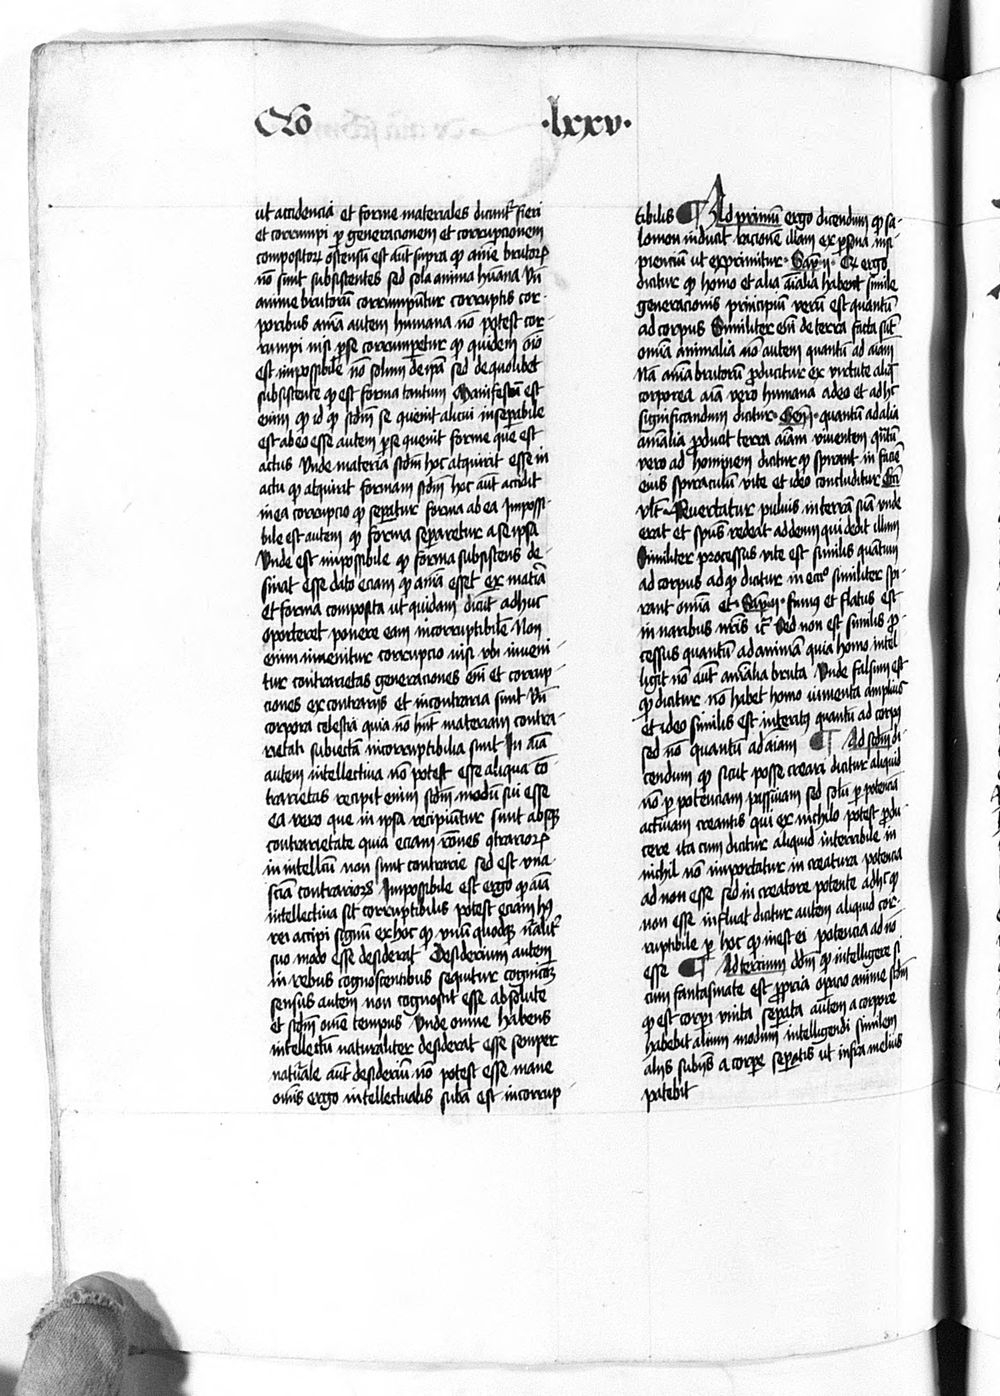 Qo
·lxxv·
ut accidencia et forme materiales dicunt᷑ fieri
et corrumpi ꝑ generacionem et corrupcionem
compositoꝝ ostensū est aūt supra ꝙ aīe brutoꝝ
nō sunt subsistentes sed sola anima hūana Vn̄
anime brutorū corrumpūtur corruptis cor-
poribus aīma autem humana nō potest cor-
rumpi nisi ꝑse corrumperetur ꝙ quidem oīo
est impossibile nō solum de ip̄a sed de quolibet
subsistente ꝙ est forma tantum Manifestū est
enim ꝙ id ꝙ scdm̄ se quenit alicui inseꝑabile
est ab eo esse autem ꝑse quenit forme que est
actus Vnde materia scdm̄ hoc adquirit esse in
actu ꝙ adquirit formam scdm̄ hoc aūt accidit
in ea corrupcio ꝙ seꝑatur forma ab ea impossi-
bile est autem ꝙ forma separetur a se ipsa
Vnde est impossibile ꝙ forma subsistens de-
sinat esse dato eciam ꝙ aīma esset ex matīa
et forma composita ut quidam dicūt adhuc
oporteret ponere eam incorruptibilē Non
enim inuenitur corrupcio nisi vbi inueni-
tur contrarietas generaciones enī et corrup-
ciones ex contrarijs et in contraria sunt Vn̄
corpora celestia quia nō hn̄t materiam contra-
rietati subiectā incorruptibilia sunt In aīa
autem intellectiua nō potest esse aliqua cō-
trarietas recipit enim scdm̄ modū sui esse
ea vero que in ipsa recipiūtur sunt absqꝫ
contrarietate quia eciam rōnes qtrarioꝝ
in intellcū non sunt contrarie sed est vna
scīa contrarioꝝ Impossibile est ergo ꝙ aīa
intellectiua sit corruptibilis potest eciam hꝰ
rei accipi signū ex hoc ꝙ vnū quodqꝫ nālit᷑
suo modo esse desiderat Desiderium autem
in rebus cognoscentibus sequitur cognicōꝫ
sensus autem non cognoscit esse absolute
et scdm̄ omē tempus Vnde omne habens
intellectū naturaliter desiderat esse semper
natūale aūt desideriū nō potest esse inane
omīs ergo intellectualis suba est incorrup-
tibilis ¶ Ad primū ergo dicendum ꝙ sa-
lomon inducit racionē illam ex ꝑsona insi-
piencium ut exprimitur Sap̄ · ii · Qꝫ ergo
dicitur ꝙ homo et alia aīalia habent simile
generacionis principiū verū est quantū
ad corpus Similiter enī de terra facta sūt
omīa animalia nō autem quantū ad aīam
Nā aīma brutorū producitur ex virtute aliq̄
corporea aīa vero humana a deo et ad hc̄
significandum dicitur · Geñ · i · quantū ad alia
aīmalia producat terra aīam viuentem quātū
vero ad hominem dicitur ꝙ spirauit in faciē
eius spiraculū vite et ideo concluditur Ecc̄i
vlt̄ · Reuertatur puluis in terrā suā vnde
erat et spūs redeat ad deum qui dedit illum
Similiter processus vite est similis quātum
ad corpus ad ꝙ dicitur in ecc̄o similiter spi-
rant omīa et · Sap̄ · ii · fumus et flatus est
in naribus nrīs ic̄ Sed non est similis pro-
cessus quantū ad animam quia homo intel-
ligit nō aūt aīmalia bruta Vnde falsum est
ꝙ dicitur nō habet homo iumenta amplius
et ideo similis est interitꝰ quantū ad corpꝰ
sed nō quantū ad aīam ¶ Ad scdm̄ di-
cendum ꝙ sicut posse creari dicitur aliquid
nō ꝑ potenciam passiuam sed solū ꝑ potenciā
actiuam creantis qui ex nichilo potest produ-
cere ita cum dicitur aliquid uertibile in
nichil nō importatur in creatura potencia
ad non esse sed in creatore potencia ad hc̄ ꝙ
non esse influat dicitur autem aliquid cor-
ruptibile ꝑ hoc ꝙ inest ei potencia ad nō
esse ¶ Ad tercium dd̄m ꝙ intelligere
cum fantasmate est propria oꝑacio anime scdm̄
ꝙ est corpi vnita seꝑata autem a corpore
habebit alium modum intelligendi similem
alijs subijs a corꝑe seꝑatis ut infra melius
patebit